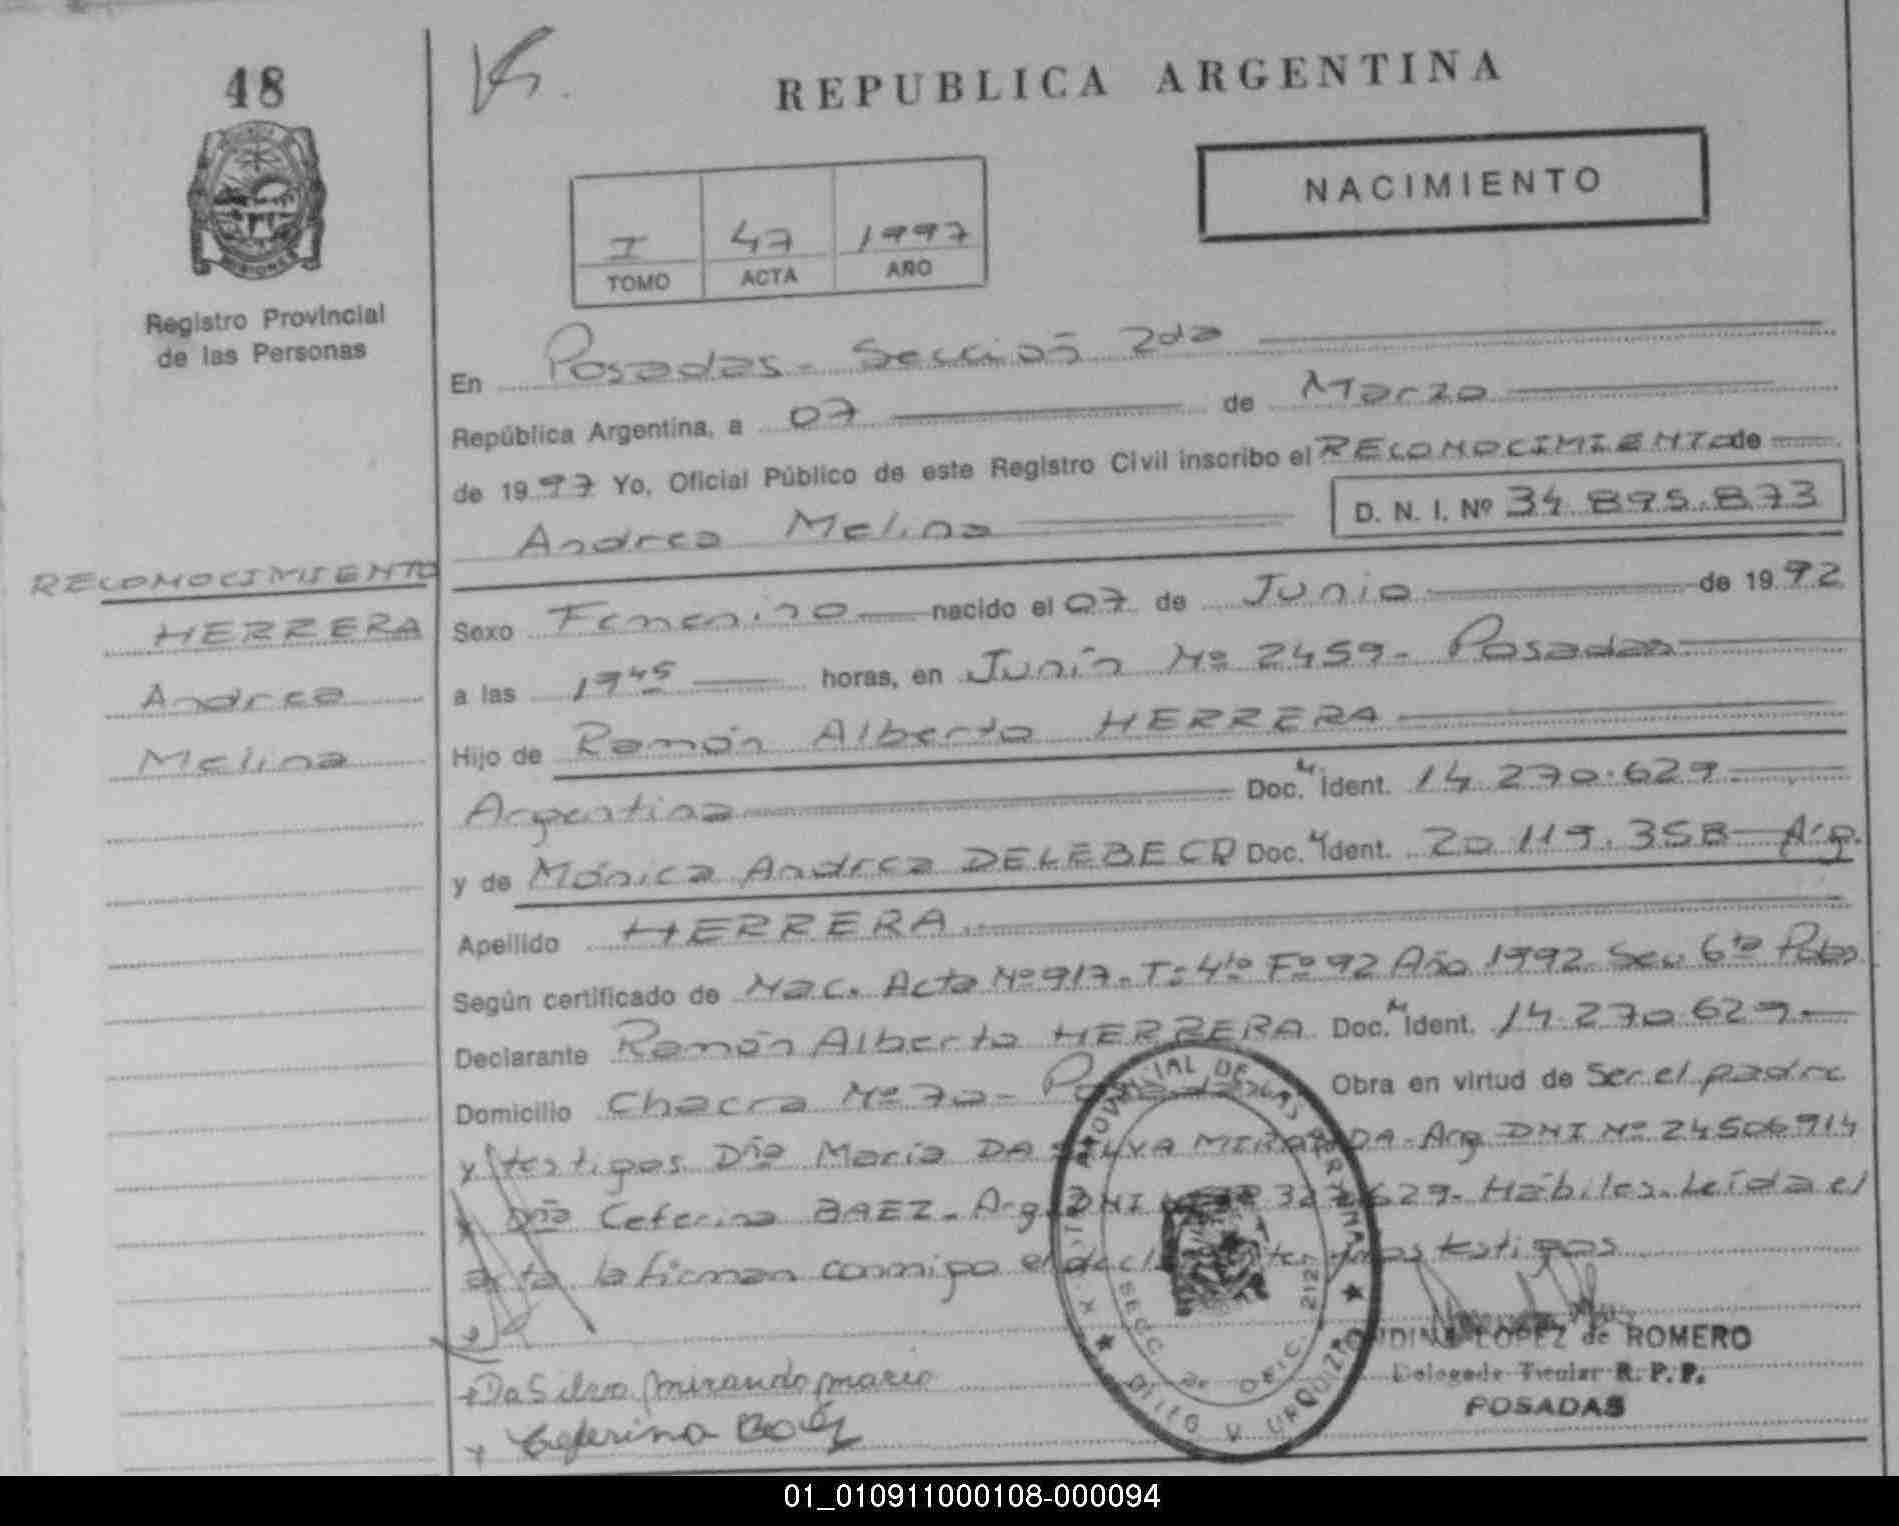 48
REPUBLICA ARGENTINA
NACIMIENTO
I 47 1997
TOMO ACTA AÑO
MISIONES
Registro Provincial
de las Personas
En Posadas - Sección 2da
República Argentina, a 07 de Marzo
de 1997 Yo, Oficial Público de este Registro Civil inscribo el RECONOCIMIENTO de
Andrea Melina D. N. I. Nº 34.895.873
RECONOCIMIENTO
HERRERA
Andrea
Melina
Sexo Femenino nacido el 07 de Junio de 1992
a las 19 45 horas, en Junín Nº 2459 - Posadas
Hijo de Ramón Alberto HERRERA
Argentina Doc. M Ident. 14.270.629
y de Mónica Andrea DELEBECQ Doc. M Ident. 20.119.358 - Arg.
Apellido HERRERA
Según certificado de Nac. Acta Nº 917 - Tº 4to Fº 92 Año 1992 Sec. 6ta Pdas
Declarante Ramón Alberto HERRERA Doc. M Ident. 14.270.629
Domicilio Chacra Nº 70 - Posadas Obra en virtud de Ser el padre
y testigos Dña Maria DA SILVA MIRANDA - Arg. DNI Nº 24506914
y Dña Ceferina BAEZ - Arg. DNI 629 - Hábiles. Leída el
acta la firman conmigo el testigos
LOPEZ de ROMERO
Delegada Titular R. P. P.
POSADAS
Da Silva miranda maria
Ceferina Baez
PROVINCIAL DE LAS PERSONAS
SECC. 2º OFIC. 2127
01_010911000108-000094